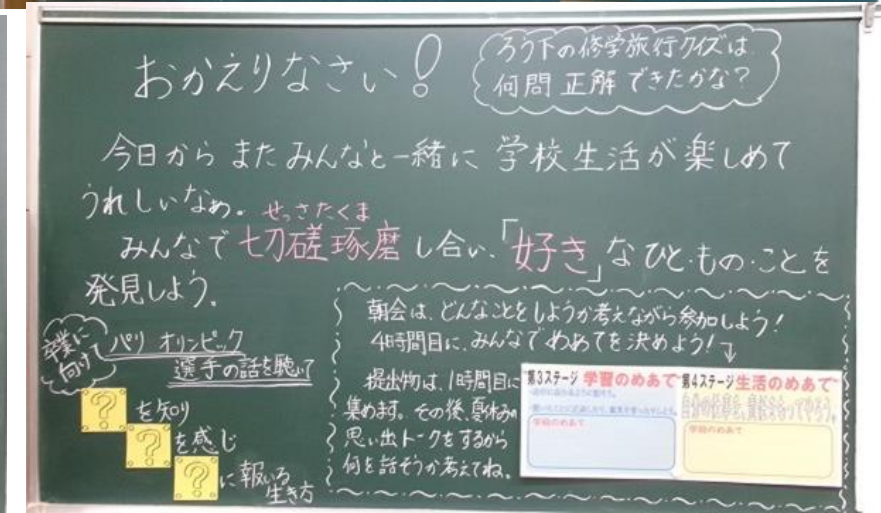 おかえりなさい!
ろう下の修学旅行クイズは
何問正解できたかな?
今日からまたみんなと一緒に学校生活が楽しめて
うれしいなぁ。
せっさたくま
みんなで切磋琢磨し合い、「好き」なひと・もの・ことを
発見しよう。
卒業に
向けて
パリ オリンピック
選手の話を聴いて
?を知り
?を感じ
?に報いる
生き方
朝会は、どんなことをしようか考えながら参加しよう!
4時間目に、みんなでめあてを決めよう!↓
提出物は、1時間目に
集めます。その後、夏休みの
思い出トークをするから
何を話そうか考えてね。
第3ステージ 学習のめあて
学級のめあて
第4ステージ 生活のめあて
学級のめあて